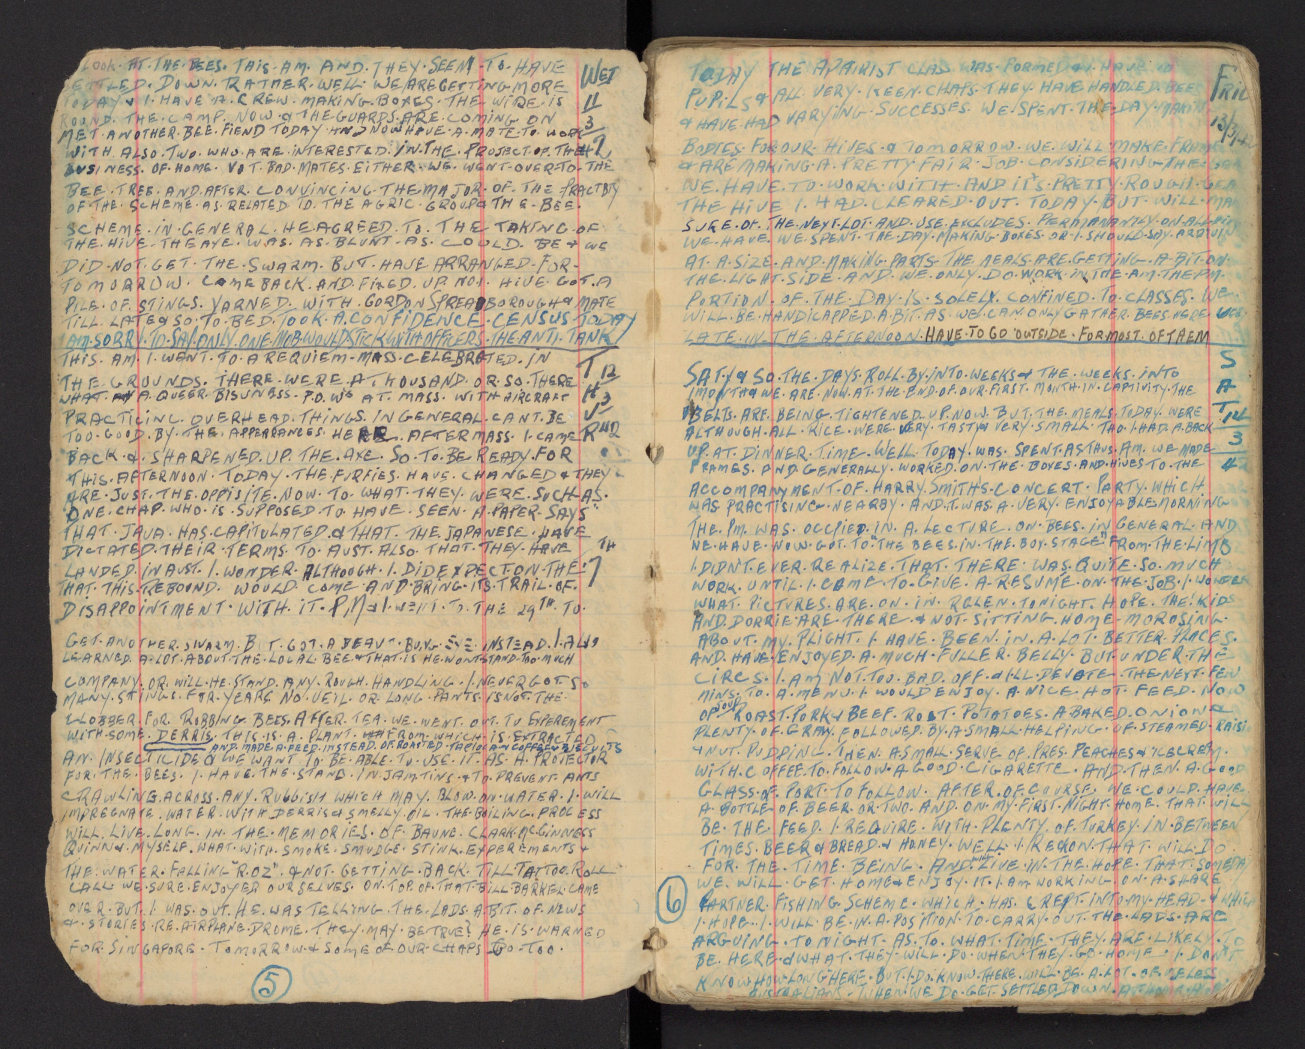 LOOK. AT. THE. BEES. THIS. AM. AND. THEY. SEEM. TO. HAVE
SETTLED. DOWN. RATHER. WELL. WE ARE GETTING MORE
TODAY & I. HAVE. A. CREW. MAKING. BOXES. THE WIRE. IS
ROUND. THE. CAMP. NOW & THE GUARDS. ARE. COMING ON
MET. ANOTHER. BEE. FIEND TODAY AND NOW HAVE. A. MATE. TO. WORK
WITH. ALSO. TWO. WHO. ARE. INTERESTED. IN. THE. PROJECT. OF. THE
BUSINESS. OF. HOME. NOT. BAD. MATES. EITHER. WE. WENT. OVER. TO. THE
BEE. TREE. AND. AFTER. CONVINCING. THE. MAJOR. OF. THE.
OF THE. SCHEME. AS. RELATED. TO. THE AGRIC. GROUP & THE. BEE.
SCHEME. IN. GENERAL. HE AGREED. TO. THE. TAKING. OF
THE. HIVE. THE AXE. WAS. AS. BLUNT. AS. COULD. BE & WE
DID. NOT. GET. THE. SWARM. BUT. HAVE ARRANGED. FOR.
TOMORROW. CAME BACK. AND. FIXED. UP. NO 1. HIVE. GOT. A
PILE. OF. STINGS. YARNED. WITH. GORDON SPREADBOROUGH & MATE
TILL. LATE & SO. TO. BED. TOOK. A. CONFIDENCE. CENSUS TODAY
I AM. SORRY. TO. SAY. ONLY. ONE. MOB. WOULD STICK WITH OFFICERS. THE ANTI. TANK
WED
11
3
THIS. AM. I WANT. TO. A REQUIEM. MASS. CELEBRATED. IN
THE GROUNDS. THERE. WERE. A THOUSAND. OR. SO. THERE
WHAT. A. QUEER. BISUNESS. P.O.WS AT. MASS. WITH AIRCRAFT
PRACTICING OVERHEAD. THINGS. IN GENERAL. CANT. BE
TOO. GOOD. BY. THE. APPEARANCES. HERE. AFTER MASS. I. CAME
BACK. & SHARPENED. UP. THE. AXE. SO. TO. BE. READY. FOR
THIS. AFTERNOON. TODAY. THE. FURFIES. HAVE. CHANGED & THEY
ARE. JUST. THE. OPPISITE. NOW. TO. WHAT. THEY. WERE. SUCH. AS.
ONE. CHAP. WHO. IS. SUPPOSED. TO. HAVE. SEEN. A. PAPER. SAYS
THAT. JAVA. HAS. CAPITULATED. & THAT. THE JAPANESE. HAVE
DICTATED. THEIR. TERMS. TO. AUST. ALSO. THAT. THEY. HAVE
LANDED. IN AUST. I. WONDER. ALTHOUGH. I. DID EXPECT ON THE 7TH
THAT. THIS. REBOUND. WOULD. COME. AND. BRING. ITS. TRAIL. OF.
DISAPPOINTMENT. WITH. IT. P.M & I. WENT. TO. THE 29TH. TO.
T 12
H 3
U
R 42
GET. ANOTHER. SWARM. BUT. GOT. A BEAUT. BUNG. EYE. INSTEAD. I ALSO
LEARNED. A. LOT. ABOUT. THE. LOCAL. BEE & THAT. IS HE WONT STAND. TOO. MUCH
COMPANY. OR. WILL. HE. STAND. ANY. ROUGH. HANDLING. I. NEVER GOT SO
MANY. STINGS. FOR. YEARS. NO. VEIL. OR LONG. PANTS. IS NOT. THE.
CLOBBER. FOR. ROBBING. BEES. AFTER. TEA. WE. WENT. OUT. TO EXPEREMENT
WITH. SOME. DERRIS. THIS. IS. A. PLANT. FROM. WHICH. IS. EXTRACTED
AND. MADE. A. FEED. INSTEAD. OF. ROASTED. TAPIOCA & COFFEE & BISCUITS
AN. INSECTICIDE & WE WANT. TO. BE. ABLE. TO. USE. IT. AS. A PROTECTOR
FOR. THE. BEES. I. HAVE. THE. STAND. IN. JAM TINS. & TO. PREVENT. ANTS
CRAWLING. ACROSS. ANY. RUBBISH. WHICH MAY. BLOW. ON. WATER. I. WILL
IMPREGNATE. WATER. WITH. DERRIS & SMELLY. OIL. THE. BOILING. PROCESS
WILL. LIVE. LONG. IN. THE. MEMORIES. OF. BAUNE. CLARK. MCGINNESS
QUINN & MYSELF. WHAT. WITH. SMOKE. SMUDGE. STINK. EXPEREMENTS &
THE. WATER. FALLING "ROZ". & NOT. GETTING. BACK. TILL TATTOO. ROLL
CALL. WE. SURE. ENJOYED. OURSELVES. ON. TOP. OF. THAT. BILL. BARREL. CAME
OVER. BUT. I. WAS. OUT. HE. WAS. TELLING. THE. LADS. A BIT. OF. NEWS
& STORIES. RE. AIRPLANE. DROME. THEY. MAY. BE TRUE? HE. IS. WARNED
FOR. SINGAPORE. TOMORROW & SOME. OF OUR. CHAPS. GO. TOO.
5
TODAY THE APAIRIST CLASS WAS FORMED & I HAVE 10
PUPILS & ALL VERY. KEEN. CHAPS. THEY. HAVE HANDLED. BEES
& HAVE. HAD VARYING. SUCCESSES. WE. SPENT. THE. DAY. MAKING
BODIES. FOR OUR. HIVES. & TOMORROW. WE. WILL. MAKE. FRAMES
& ARE MAKING. A. PRETTY. FAIR. JOB. CONSIDERING. THE.
WE. HAVE. TO. WORK. WITH. AND IT'S. PRETTY. ROUGH.
THE HIVE I. HAD. CLEARED. OUT. TODAY. BUT. WILL. MAKE
SURE. OF. THE. NEXT. LOT. AND. USE. EXCLUDES. PERMANANTLY. ON. ALL.
WE. HAVE. WE SPENT. THE. DAY. MAKING. BOXES. OR. I. SHOULD. SAY.
AT. A. SIZE. AND. MAKING. PARTS. THE. MEALS. ARE. GETTING. A. BIT. ON
THE. LIGHT. SIDE. AND. WE. ONLY. DO. WORK. IN THE. AM. THE PM.
PORTION. OF. THE. DAY. IS. SOLELY. CONFINED. TO. CLASSES. WE
WILL. BE. HANDICAPPED. A BIT. AS. WE. CAN. ONLY GATHER. BEES HERE VERY
LATE. IN. THE. AFTERNOON. HAVE. TO GO OUTSIDE. FOR MOST. OF THEM
FRI
13/3/42
SATY & SO. THE. DAYS. ROLL. BY. INTO. WEEKS & THE. WEEKS. INTO
MONTH & WE. ARE. NOW. AT. THE. END. OF. OUR. FIRST. MONTH. IN. CAPTIVITY. THE
BELTS. ARE. BEING. TIGHTENED. UP. NOW. BUT. THE. MEALS. TODAY. WERE
ALTHOUGH. ALL. RICE. WERE. VERY. TASTY & VERY. SMALL. THO. I. HAD. A. BACK
UP. AT. DINNER. TIME. WELL. TODAY. WAS. SPENT. AS THUS. AM. WE. MADE
FRAMES. AND. GENERALLY. WORKED. ON. THE. BOXES. AND. HIVES. TO. THE
ACCOMPANYMENT. OF. HARRY. SMITHS. CONCERT. PARTY. WHICH
WAS. PRACTISING. NEARBY. AND. IT. WAS. A. VERY. ENJOYABLE. MORNING
THE. PM. WAS. OCCPIED. IN. A. LECTURE. ON. BEES. IN. GENERAL. AND
WE. HAVE. NOW. GOT. TO "THE. BEES. IN. THE. BOX. STAGE" FROM. THE. LIMB
I DIDN'T. EVER. REALIZE. THAT. THERE. WAS. QUITE. SO. MUCH
WORK. UNTIL. I. CAME. TO. GIVE. A RESUME. ON. THE. JOB. I. WONDER
WHAT. PICTURES. ARE. ON. IN. ROLEN. TONIGHT. HOPE. THE. KIDS
AND. DORRIE. ARE. THERE. & NOT. SITTING. HOME. MOROSING.
ABOUT. MY. PLIGHT. I. HAVE. BEEN. IN. A. LOT. BETTER. PLACES.
AND. HAVE. ENJOYED. A. MUCH. FULLER. BELLY. BUT UNDER THE
CIRCS. I. AM. NOT. TOO. BAD. OFF. & ILL. DEVOTE. THE. NEXT. FEW
MINS. TO. A. MENU. I. WOULD. ENJOY. A. NICE. HOT. FEED. NOW
OF SOUP ROAST. PORK & BEEF. ROAST. POTATOES. A BAKED. ONION &
PLENTY. OF. GRAVY. FOLLOWED. BY. A. SMALL. HELPING. OF. STEAMED. RAISIN
& NUT. PUDDING. THEN. A. SMALL. SERVE. OF. PRES. PEACHES & ICECREAM
WITH. COFFEE. TO. FOLLOW. A GOOD. CIGARETTE. AND. THEN. A. GOOD
GLASS. OF. PORT. TO FOLLOW. AFTER. OF COURSE. WE. COULD. HAVE
A. BOTTLE. OF. BEER. OR. TWO. AND. ON. MY. FIRST. NIGHT. HOME. THAT. WILL
BE. THE. FEED. I. REQUIRE. WITH. PLENTY. OF. TURKEY. IN. BETWEEN
TIMES. BEER & BREAD. & HONEY. WELL. I. RECKON. THAT. WILL. DO
FOR. THE. TIME. BEING. AND LIVE. IN. THE. HOPE. THAT. SOMEDAY
WE. WILL. GET. HOME & ENJOY. IT. I. AM WORKING. ON. A SHARE
FARTNER. FISHING. SCHEME. WHICH. HAS. CREPT. INTO. MY. HEAD. & WHICH
I. HOPE. I. WILL. BE. IN. A. POSITION. TO. CARRY. OUT. THE. LADS. ARE
ARGUING. TO. NIGHT. AS. TO. WHAT. TIME. THEY. ARE. LIKELY. TO
BE. HERE. & WHAT. THEY. WILL. DO. WHEN. THEY. GO. HOME. I. DON'T
KNOW. HOW. LONG. HERE. BUT. I. DO. KNOW. THERE. WILL. BE. A. LOT. OF
AUSTRALIANS. WHEN. WE. DO. GET. SETTLED. DOWN.
S
A
T 14
3
42
6